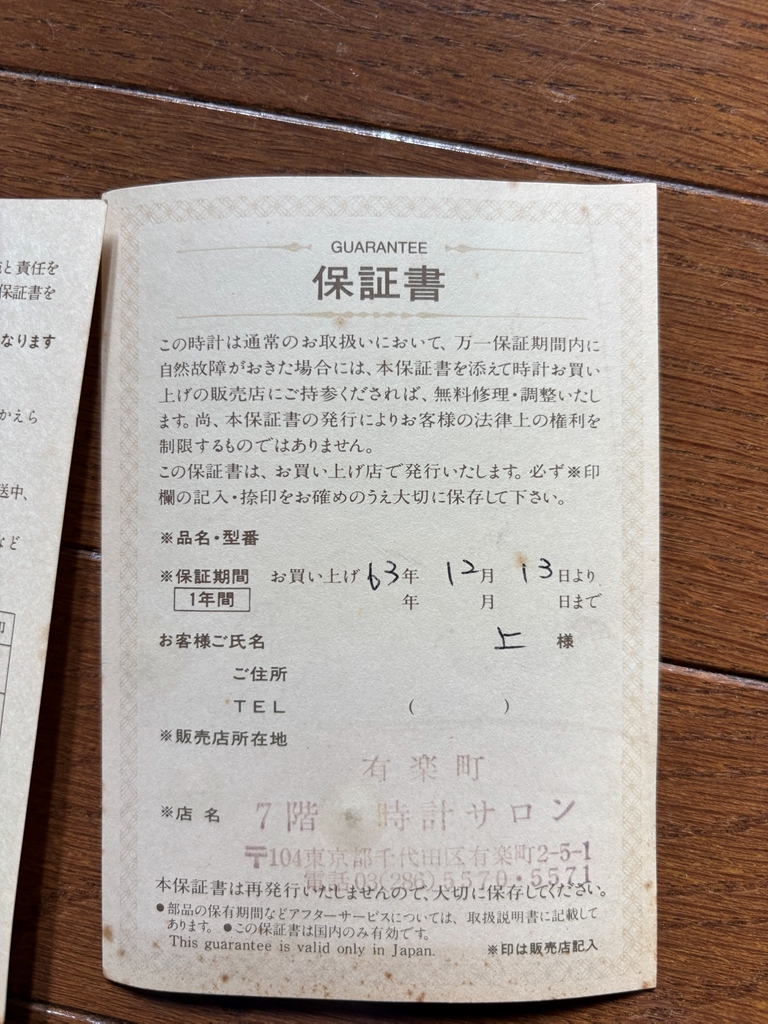 と責任を
保証書を
なります
かえら
送中、
など
印
GUARANTEE
保証書
この時計は通常のお取扱いにおいて、万一保証期間内に
自然故障がおきた場合には、本保証書を添えて時計お買い
上げの販売店にご持参くだされば、無料修理・調整いたし
ます。尚、本保証書の発行によりお客様の法律上の権利を
制限するものではありません。
この保証書は、お買い上げ店で発行いたします。必ず※印
欄の記入・捺印をお確めのうえ大切に保存して下さい。
※品名・型番
※保証期間 お買い上げ 63年 12月 13日より
1年間 年 月 日まで
お客様ご氏名 上 様
ご住所
TEL ( )
※販売店所在地
有楽町
※店名 7階 時計サロン
〒104東京都千代田区有楽町2-5-1
電話03(286)5570・5571
本保証書は再発行いたしませんので、大切に保存してください。
●部品の保有期間などアフターサービスについては、取扱説明書に記載して
あります。●この保証書は国内のみ有効です。
This guarantee is valid only in Japan. ※印は販売店記入